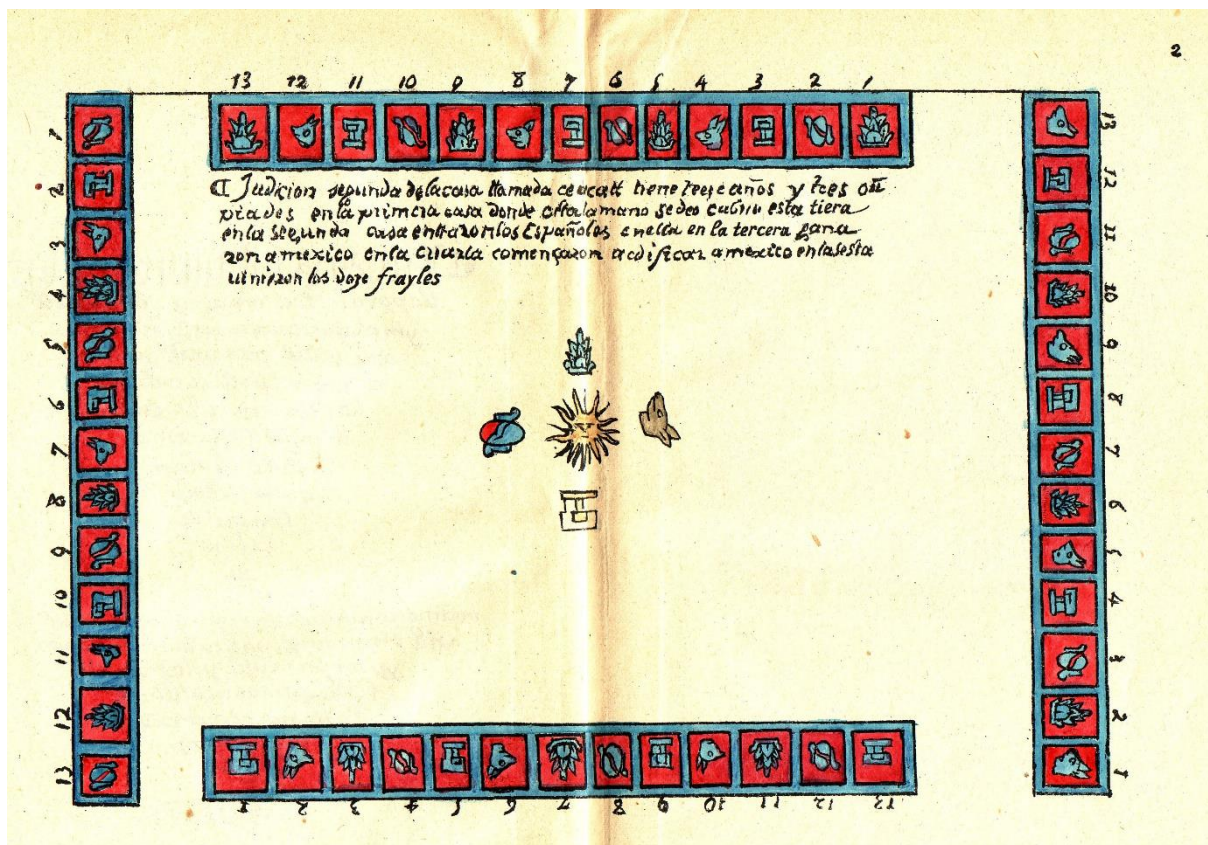 2
13 12 11 10 9 8 7 6 5 4 3 2 1
Judicion segunda dela casa llamada ce acatl tiene treze años y tres
piades en la primera casa donde esta la mano se descubrio esta tiera
en la segunda casa entraron los Españoles enella en la tercera gana
ron a mexico en la cuarta començaron a edificar a mexico en la sesta
uinieron los doze frayles
1
2
3
4
5
6
7
8
9
10
11
12
13
13
12
11
10
9
8
7
6
5
4
3
2
1
1 2 3 4 5 6 7 8 9 10 11 12 13